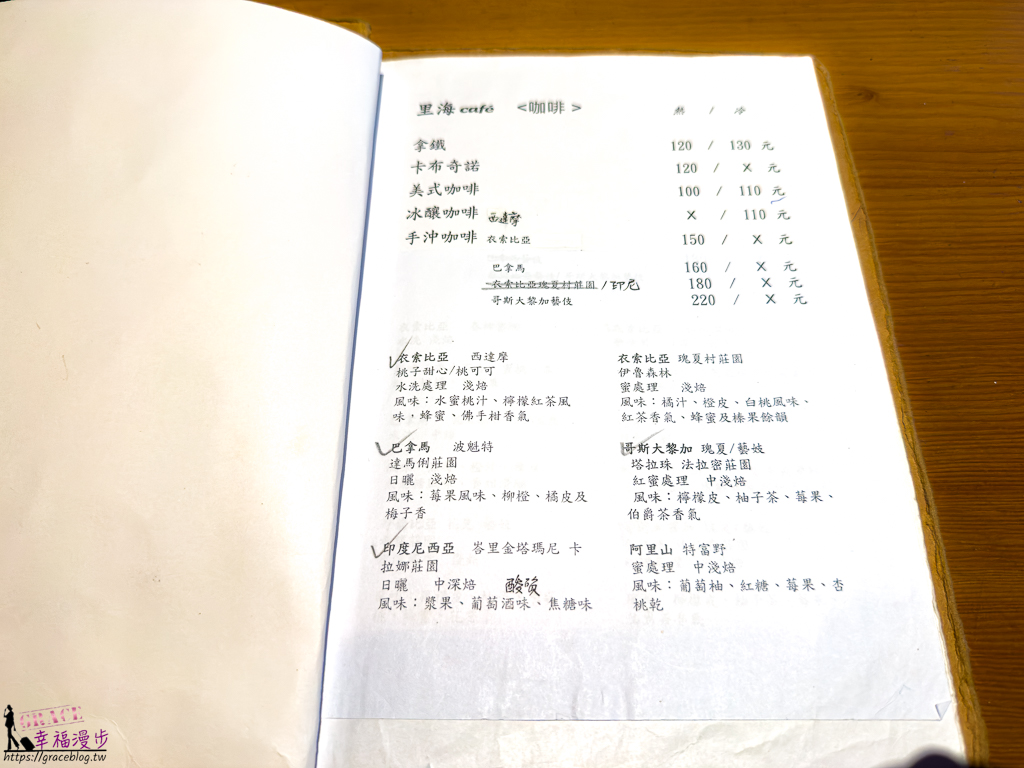 里海 café <咖啡> 熱 / 冷
拿鐵 120 / 130 元
卡布奇諾 120 / X 元
美式咖啡 100 / 110 元
冰釀咖啡 西達摩 X / 110 元
手沖咖啡 衣索比亞 150 / X 元
巴拿馬 160 / X 元
衣索比亞瑰夏村莊園 / 印尼 180 / X 元
哥斯大黎加藝伎 220 / X 元
衣索比亞 西達摩
桃子甜心/桃可可
水洗處理 淺焙
風味：水蜜桃汁、檸檬紅茶風
味，蜂蜜、佛手柑香氣
衣索比亞 瑰夏村莊園
伊魯森林
蜜處理 淺焙
風味：橘汁、橙皮、白桃風味、
紅茶香氣、蜂蜜及榛果餘韻
巴拿馬 波魁特
達馬俐莊園
日曬 淺焙
風味：莓果風味、柳橙、橘皮及
梅子香
哥斯大黎加 瑰夏/藝妓
塔拉珠 法拉密莊園
紅蜜處理 中淺焙
風味：檸檬皮、柚子茶、莓果、
伯爵茶香氣
印度尼西亞 峇里金塔瑪尼 卡
拉娜莊園
日曬 中深焙
風味：漿果、葡萄酒味、焦糖味
阿里山 特富野
蜜處理 中淺焙
風味：葡萄柚、紅糖、莓果、杏
桃乾
GRACE
幸福漫步
https://graceblog.tw